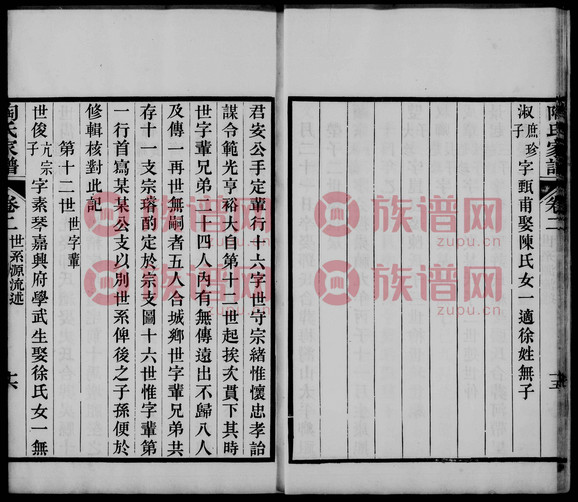 陶氏家譜
卷二
十五
淑 庶珍子 字甄甫娶陳氏女一適徐姓無子
君安公手定輩行十六字世守宗緒惟懷忠孝詒
謀合範光亨裕大自第十二世起挨次貫下其時
世字輩兄弟二十四人內有無傳遠出不歸八人
及傳一再世無嗣者五人合城鄉世字輩兄弟共
存十一支宗瑃酌定於宗支圖十六世惟字輩第
一行首寫某某公支以別世系俾後之子孫便於
修輯核對此記
第十二世 世字輩
世俊 亢宗子 字素琴嘉興府學武生娶徐氏女一無
陶氏家譜
卷二
世系源流述
十六
族谱网
zupu.cn
族谱网
zupu.cn
族谱网
zupu.cn
族谱网
zupu.cn
族谱网
zupu.cn
族谱网
zupu.cn